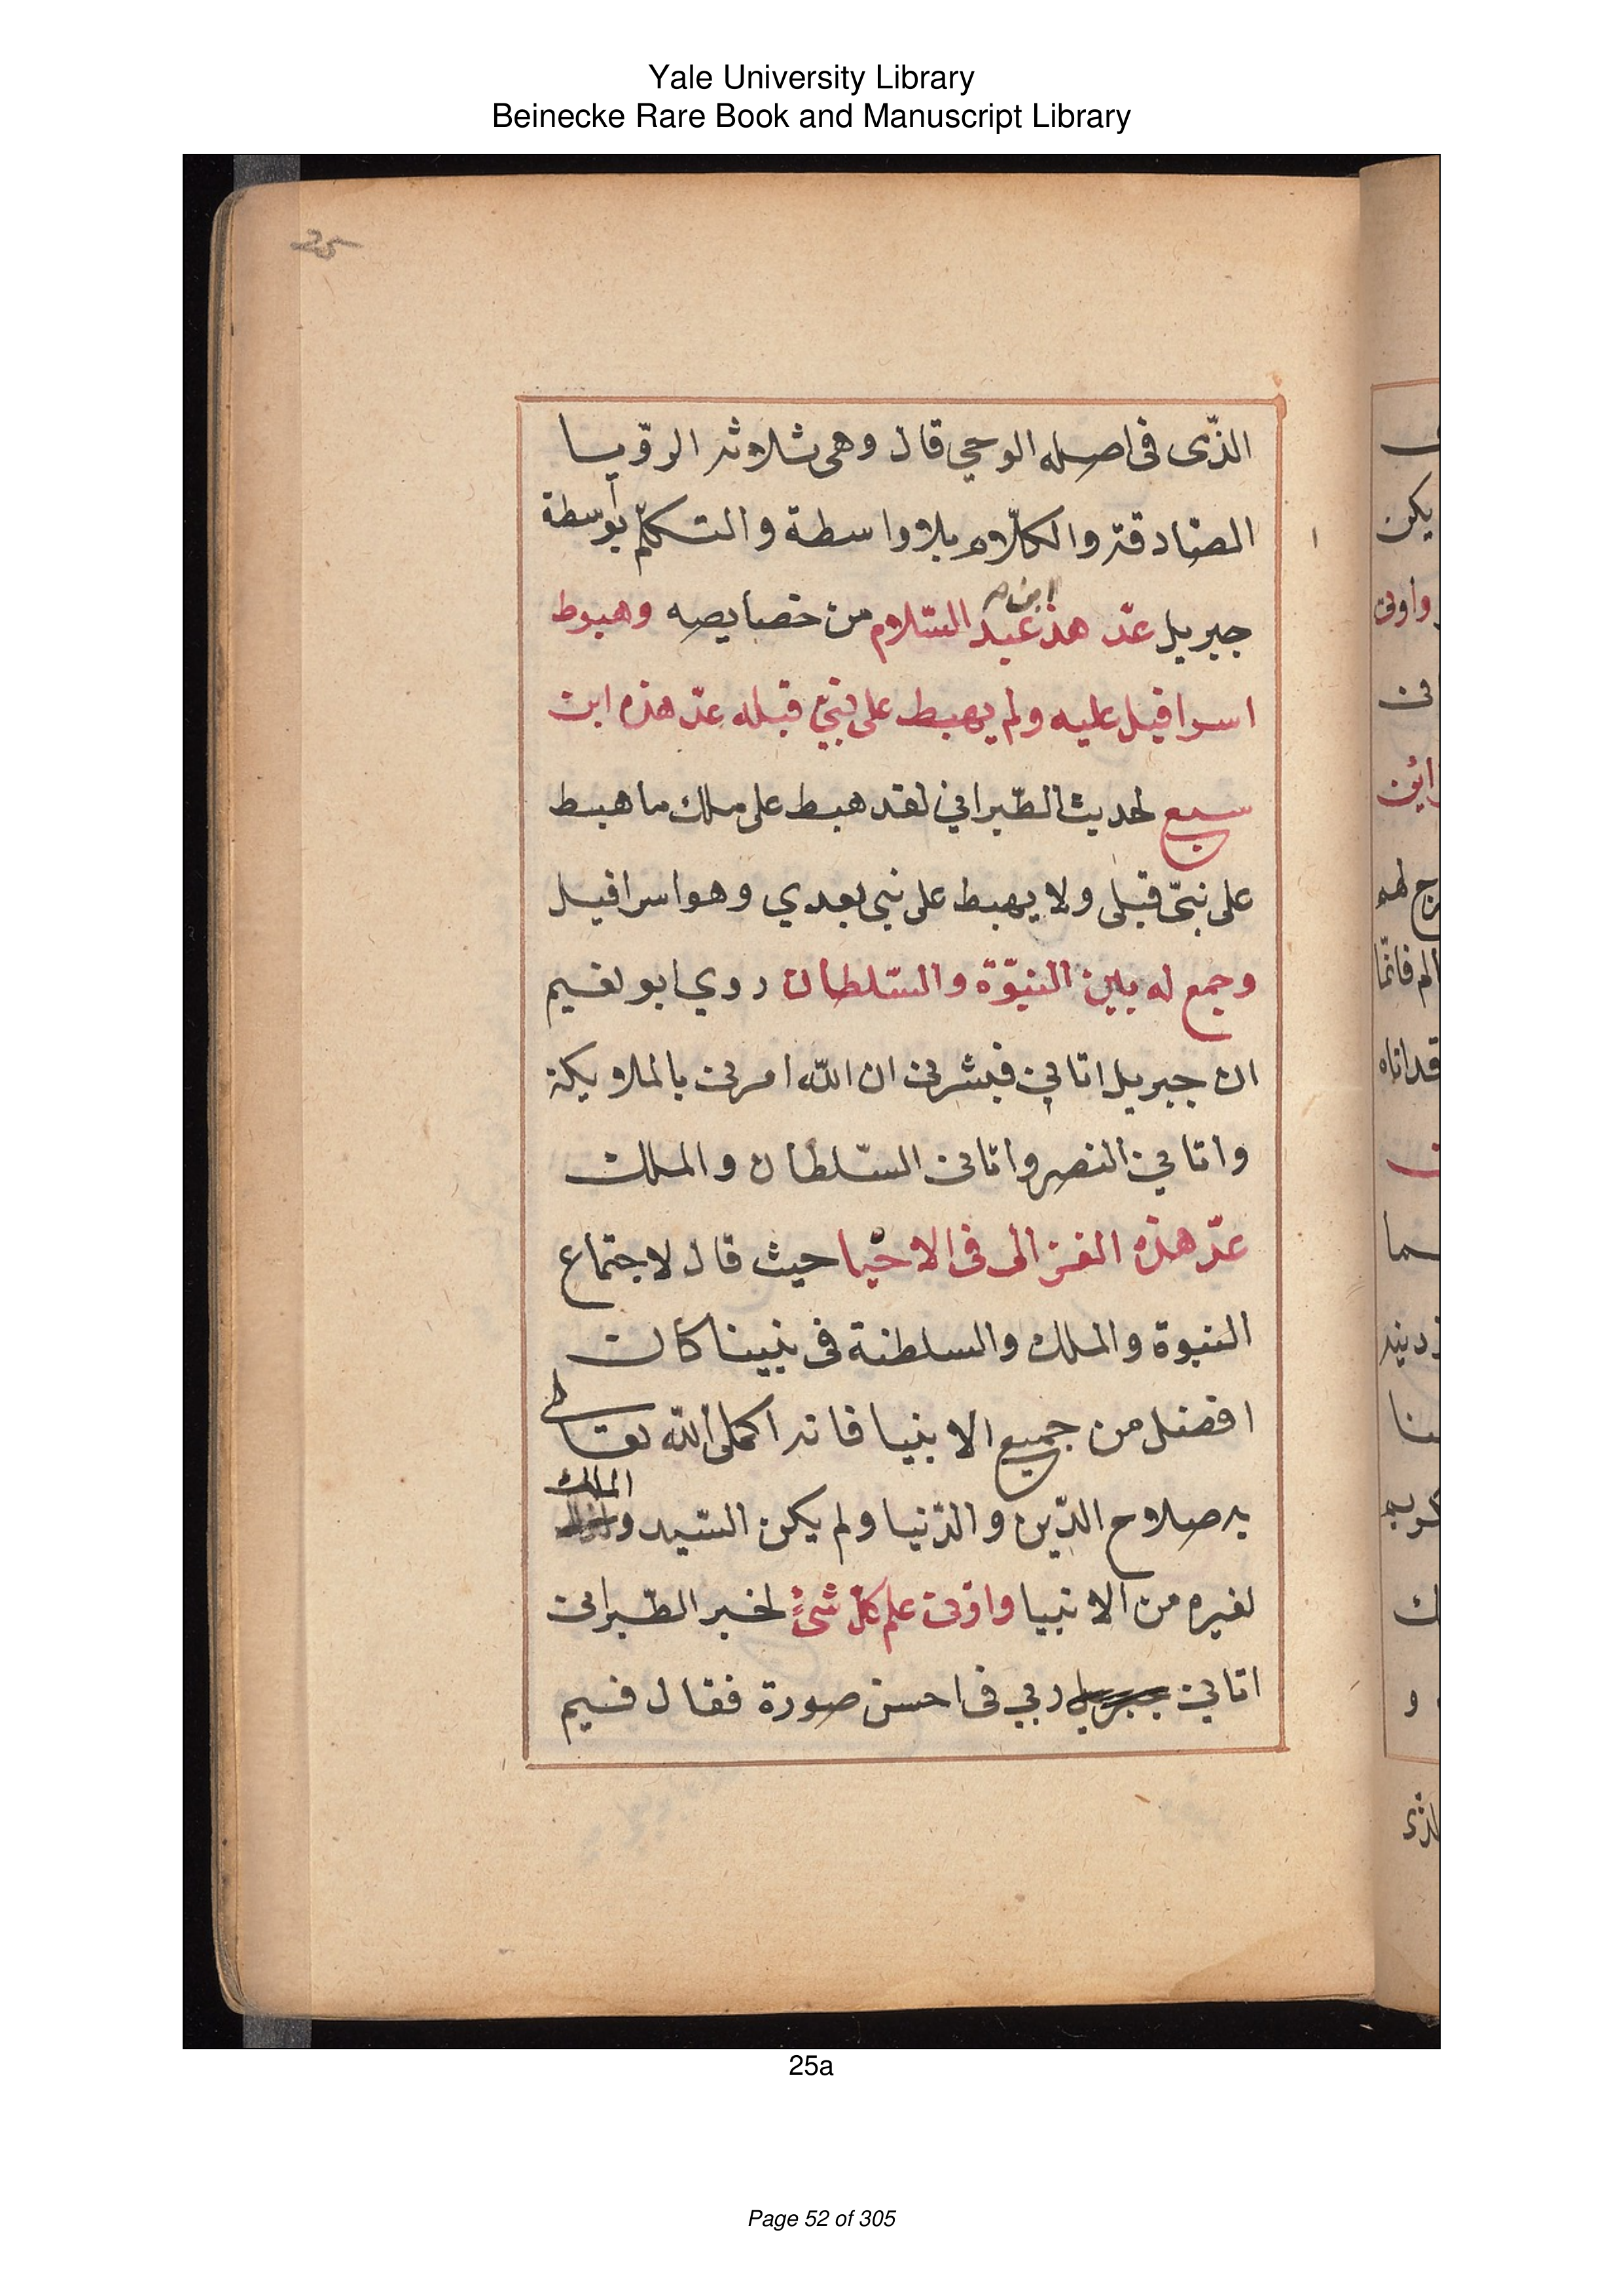 Yale University Library
Beinecke Rare Book and Manuscript Library
25
الذّى فى اصله الوحي قال وهى ثلاثه الروّيا
الصّادقة والكلّام بلا واسطة والتكلّم بواسطة
جبريل عدّ هذ ابن عبد السّلام من خصايصه وهبوط
اسرافيل عليه ولم يهبط على نبيّ قبله عدّ هذه ابن
سبع لحديث الطّبراني لقد هبط على ملك ما هبط
على نبيّ قبلى ولا يهبط على نبي بعدي وهو اسرافيل
وجمع له بين النبوّة والسّلطان روي ابو نعيم
ان جبريل اتاني فبشرنى ان الله امرنى بالملايكة
واتاني النصر واتانى السّلطان والملك
عدّ هذه الغزالى فى الاحيا حيث قال لاجتماع
النبوة والملك والسلطنة فى نبينا كان
افضل من جميع الانبيا فانه اكمل الله تعالى
به صلاح الدّين والدّنيا ولم يكن السّيد و الملك
لغيره من الانبيا واوتى علم كلّ شئٍ لخبر الطّبرانى
اتاني جبريل ربي فى احسن صورة فقال فيم
25a
Page 52 of 305